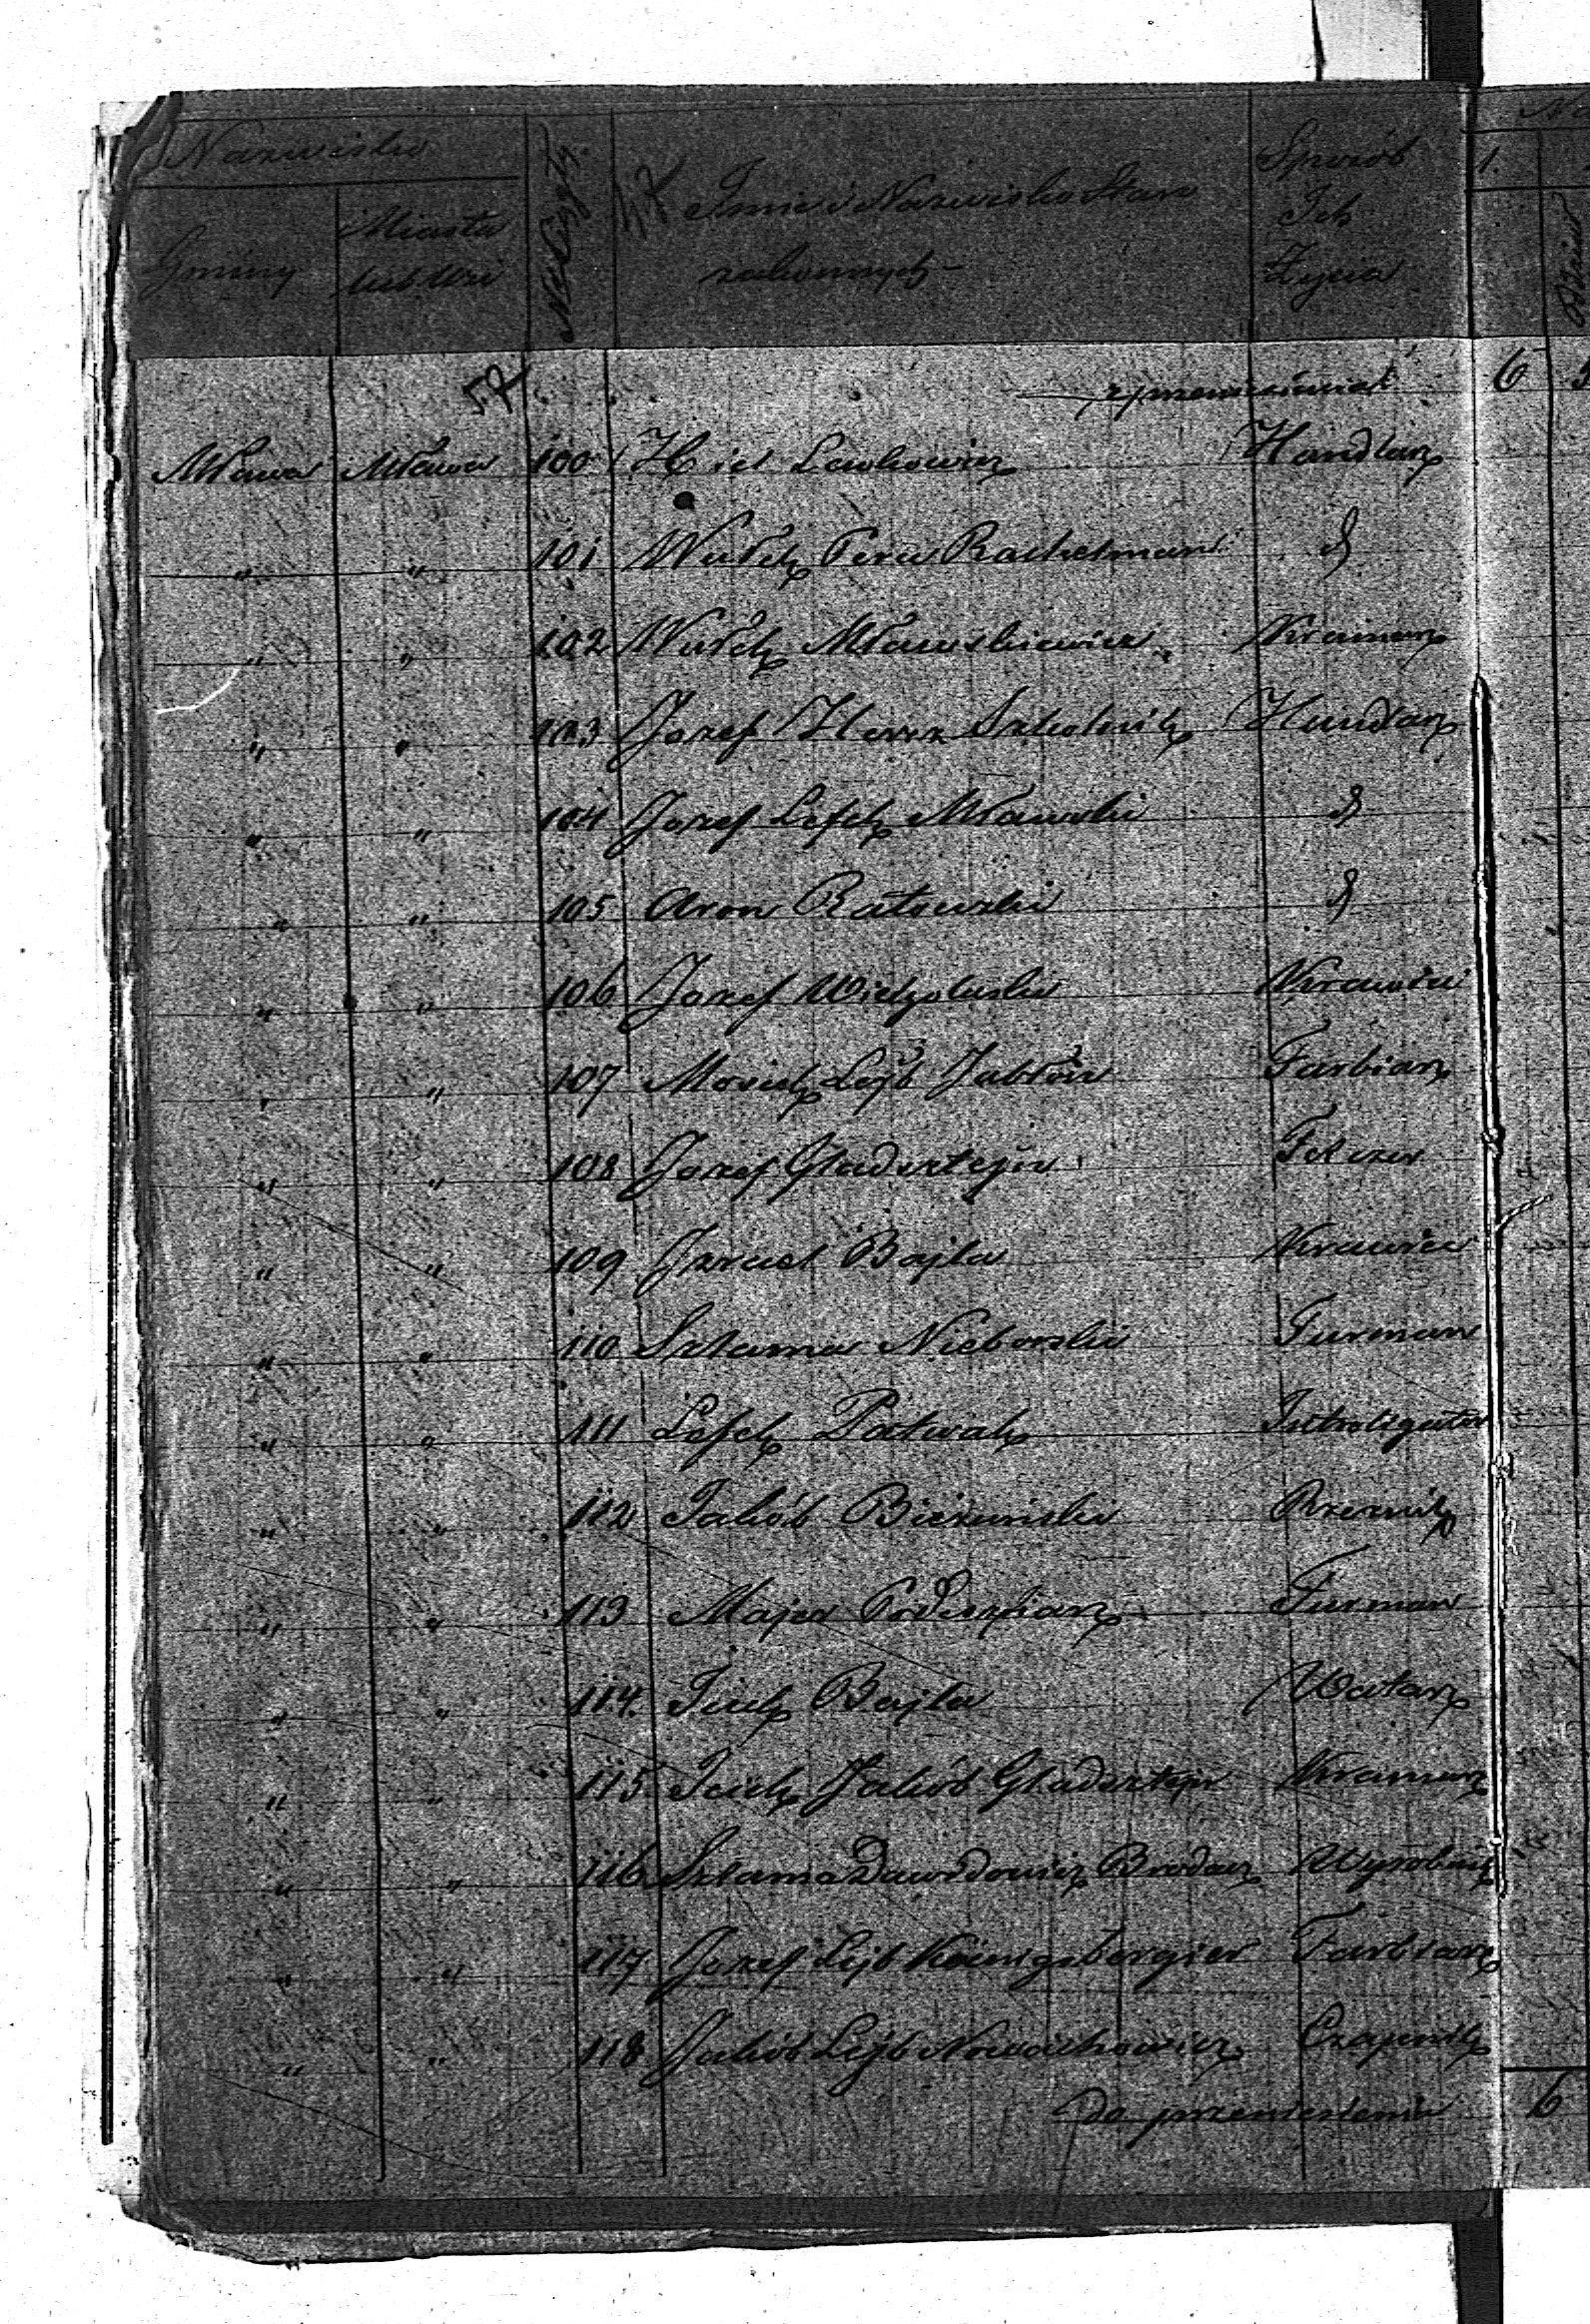 Nazwisko
Gminy
Miasta
lub Wsi
Imie i Nazwisko Star
zakonnych
Sposób
Ich
Życia
z przeniesienia 6
Mława Mława 100 Hiel Lewkowicz Handlarz
" " 101 Wulf Rachelman d
" " 102 Wulf Mławskiewicz Kramarz
" " 103 Jozef Herz Szkolnik Handlarz
" " 104 Jozef Lefek Mławski d
" " 105 Aron Ratowski d
" " 106 Jozef Krawiec
" " 107 Mosiek Lejb Jabłoń Farbiarz
" " 108 Jozef Gladsztejn Felczer
" " 109 Izrael Bajla Krawiec
" " 110 Szlama Nieborski Furman
" " 111 Lefek Patwak Introligator
" " 112 Jakób Bieżuński Rzeznik
" " 113 Majer Furman
" " 114. Icek Bajla Watarz
" " 115 Icek Jakób Gladsztejn Kramarz
" " 116 Szlama Dawidowicz Brodacz Wyrobnik
" " 117 Jozef Lejb Koenigsbergier Farbiarz
" " 118 Jakób Lejb Nowachowicz Czapnik
Do przeniesienia 6